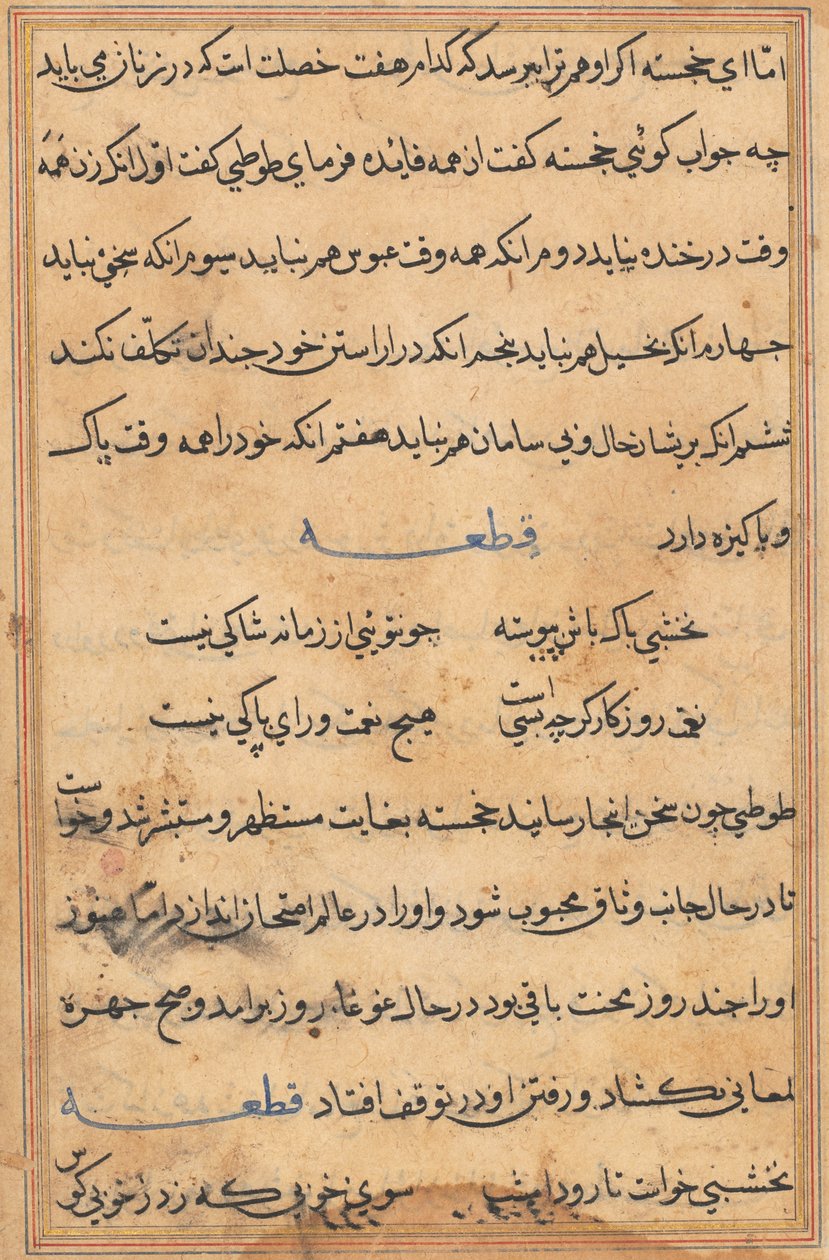 امّا ای خجسته اکر او هم ترا بپرسد که کدام هفت خصلت است که در زنان می باید
چه جواب کوئی خجسته کفت ان همه فایٔده فرمای طوطی کفت اوّل انکه زن همه
وقت در خنده نیاید دوم انکه همه وقت عبوس هم نباید سیوم انکه سخی نباید
جهارم انکه بخیل هم نباید بنجم انکه در اراستن خود جندان تکلّف نکند
ششم انکه بریشان حال و بی سامان هم نباید هفتم انکه خود را همه وقت پاک
و پاکیزه دارد قطعه
نخشبی باک باش پیوسته جو نتوئی از زمانه شاکی نیست
نعمت روزکار کرچه بسی است هیچ نعمت ورای پاکی نیست
طوطی جون سخن اینجا رسانید خجسته بغایت مستظهر و مستبشر شد و خواست
تا در حال جانب وثاق محبوب شود و او را در عالم امتحان اندازد امّا هنوز
او را جند روز محنت باقی بود در حال غوغاء روز برامد و صبح جهرهٔ
لمعانی بکشاد و رفتن او در توقف افتاد قطعه
نخشبی خواست تا رود امشب سوی خوبی که زد ز خوبی کوس